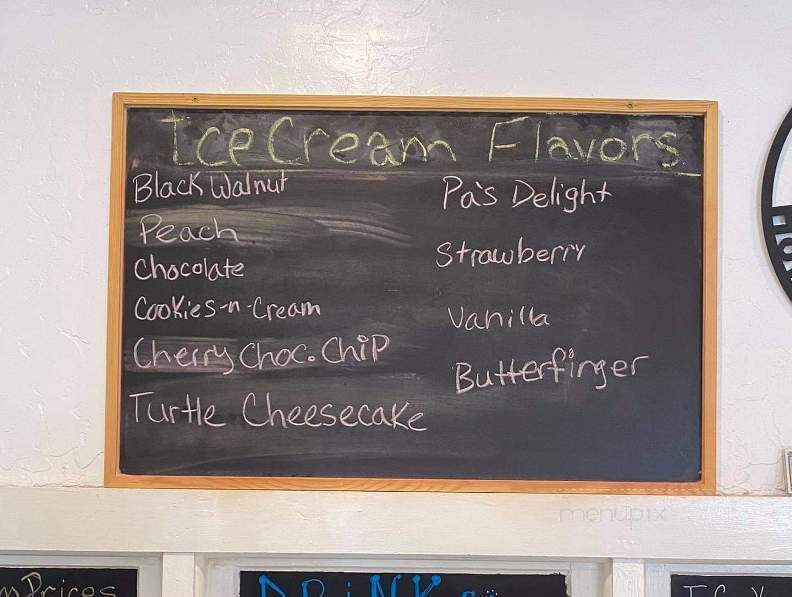 Ice Cream Flavors
Black Walnut
Peach
Chocolate
Cookies-n-Cream
Cherry Choc. Chip
Turtle Cheesecake
Pa's Delight
Strawberry
Vanilla
Butterfinger
menupix
Prices
DRiNK